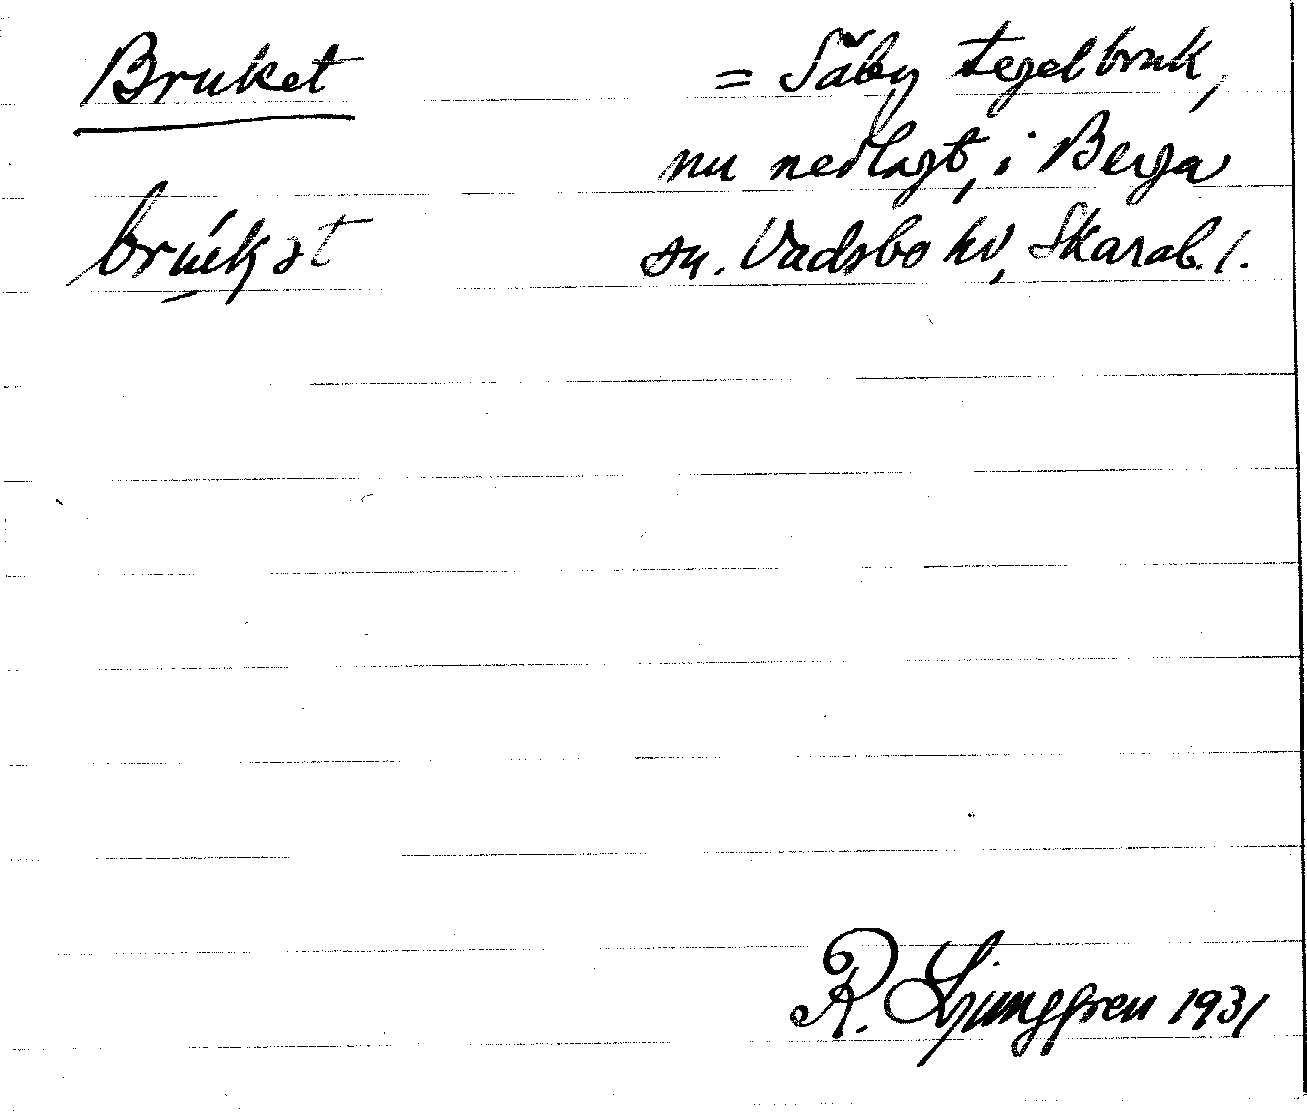 Bruket = Säby tegelbruk,
nu nedlagt, i Berga
brúkət sn. Vadsbo hd, Skarab. l.
R. Ljunggren 1931